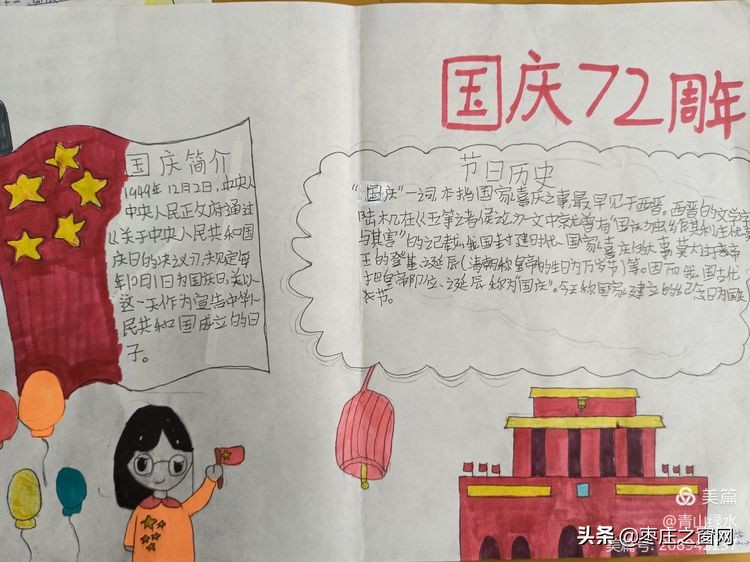 国庆72周年
国庆简介
1949年12月2日,中央人
中央人民正政府通过
《关于中央人民共和国
庆日的决议》去规定每
年10月1日为国庆日,并以
这一天作为宣告中华人
民共和国成立的日
子。
节日历史
"国庆"一词,本指国家喜庆之事,最早见于西晋。西晋的文学家
陆机在《五等诸侯论》一文中就曾有"国庆独飨其利,主忧莫
与其害"的记载,我国封建时代、国家喜庆的大事,莫大过于帝
王的登基、诞辰(清朝称皇帝的生日为万岁节)等。因而我国古代
把皇帝即位、诞辰称为国庆"。今天称国家建立的纪念日为国庆
节。
美篇
@青山绿水
头条@枣庄之窗网
美篇号: